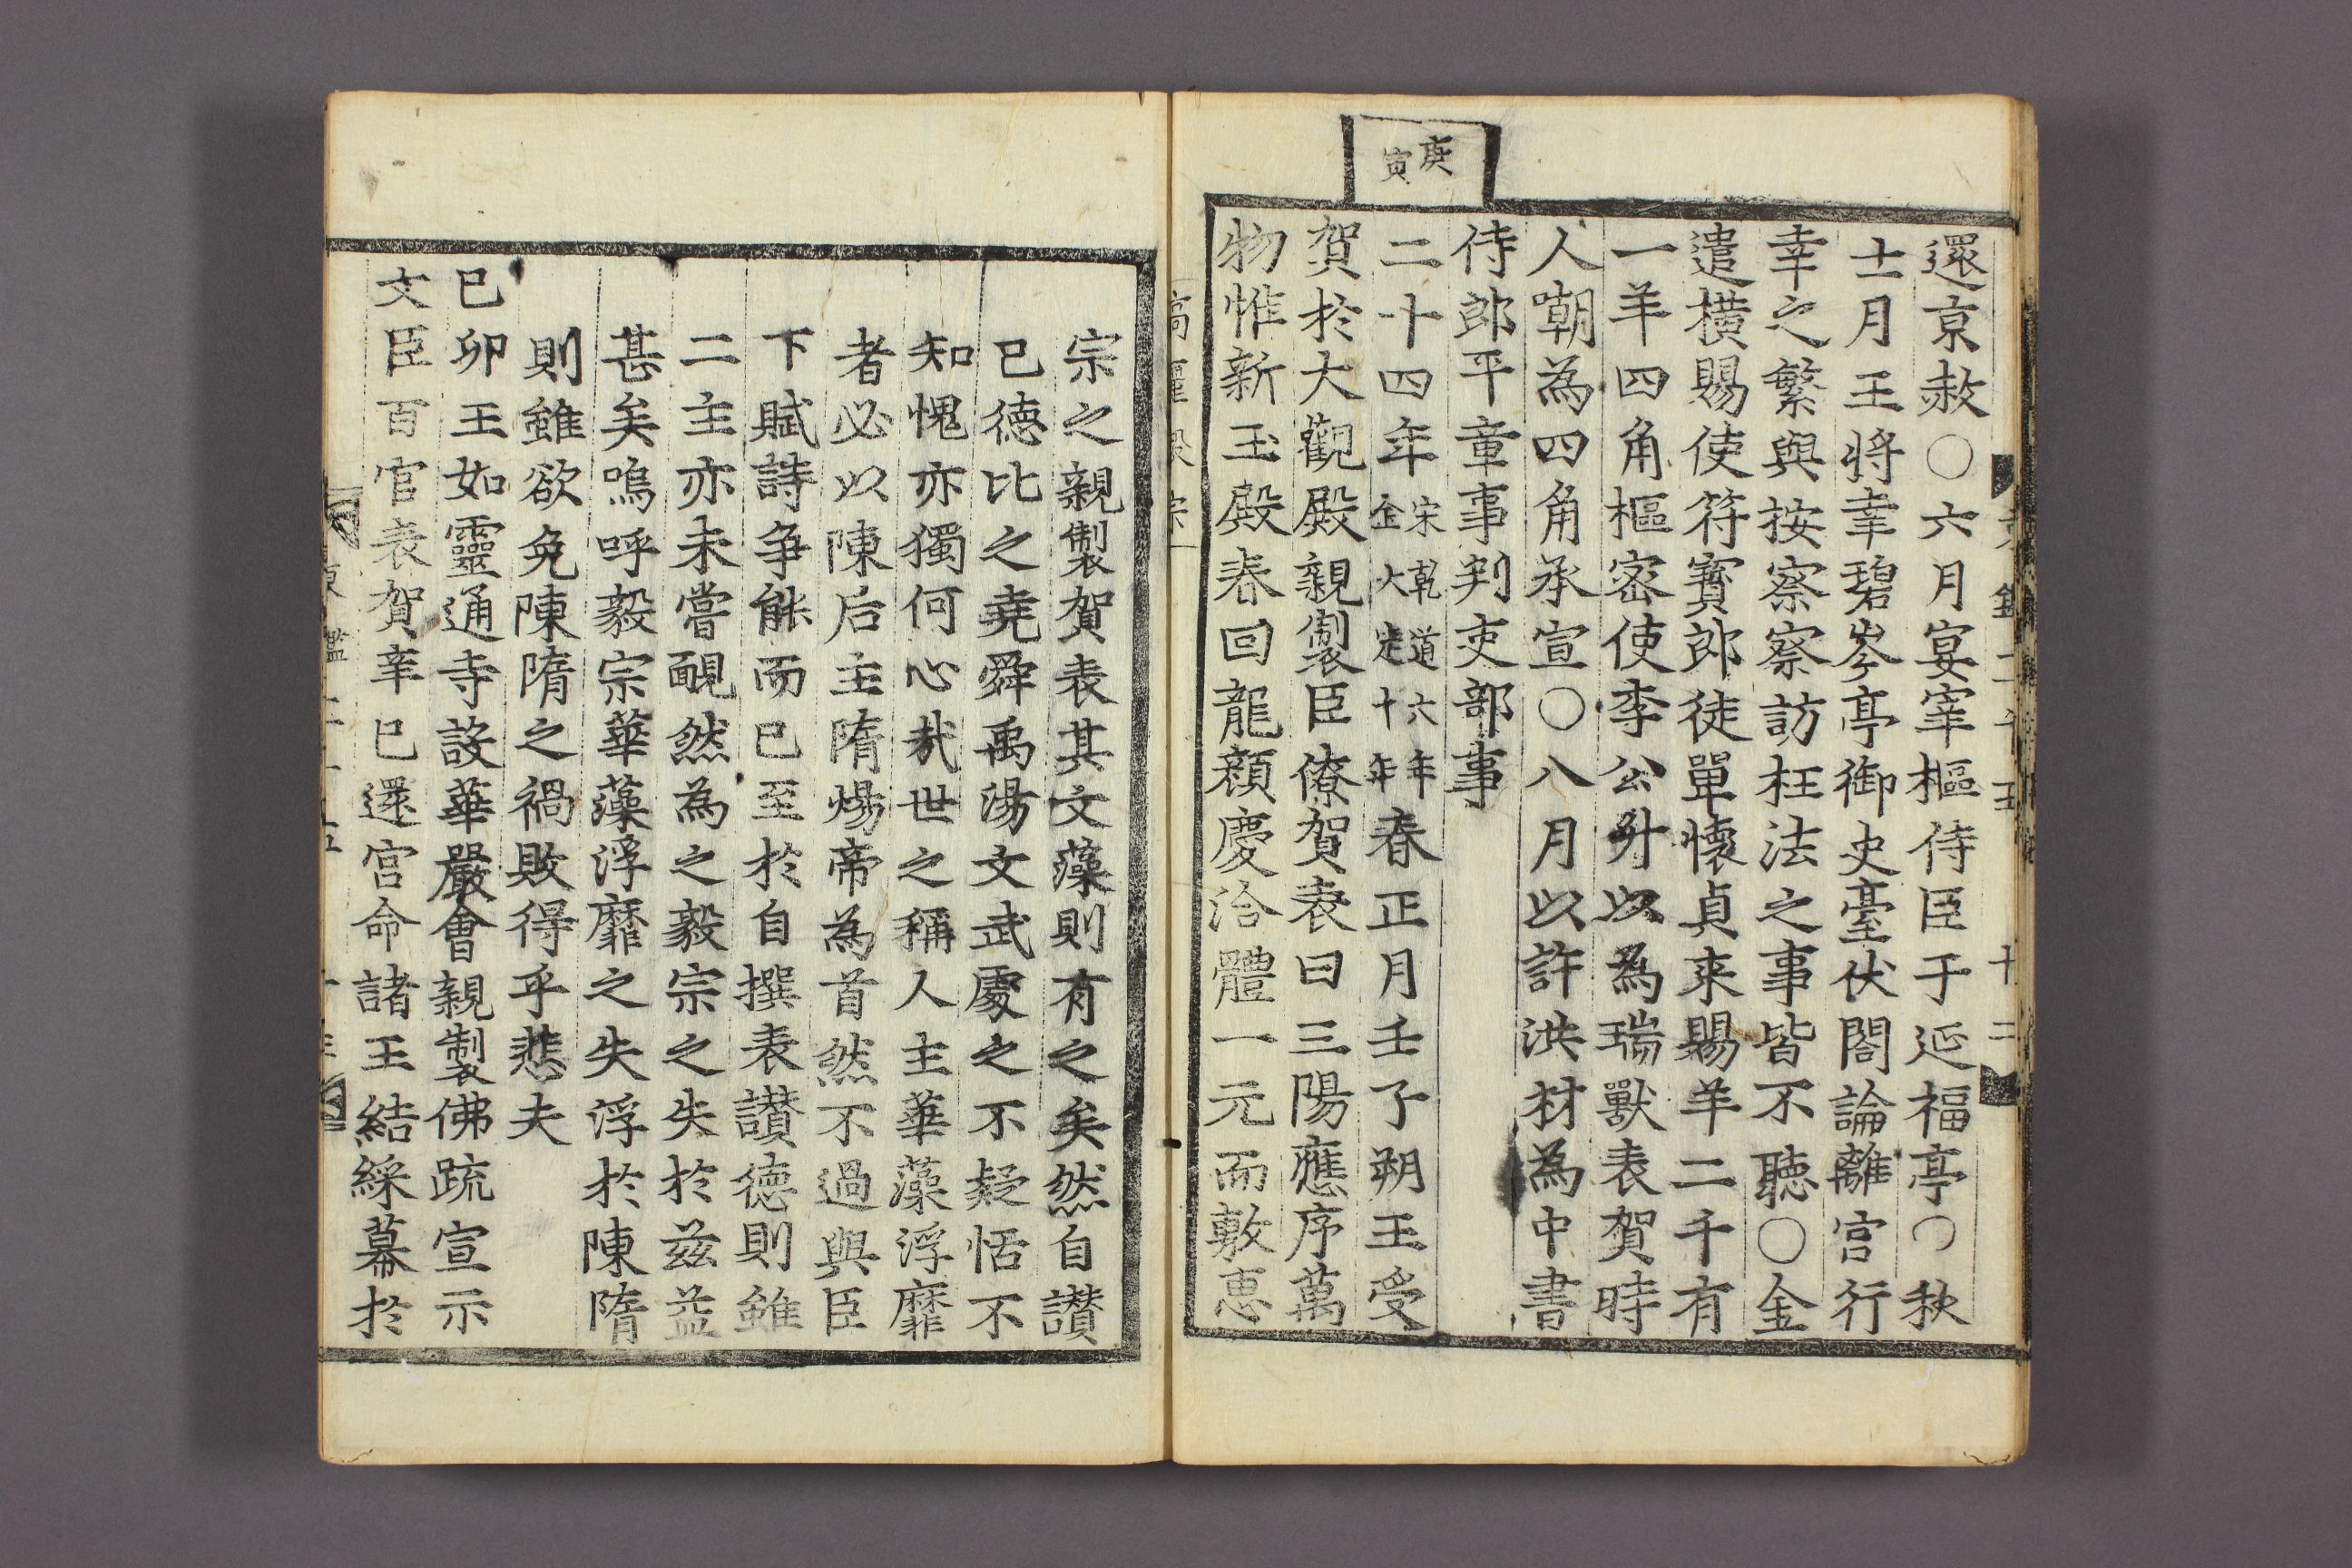 庚
寅
還京赦○六月宴宰樞侍臣于延福亭○秋
七月王將幸碧岑亭御史臺伏閤論離宮行
幸之繁與按察察訪枉法之事皆不聽○金
遣橫賜使符寳郎徒單懷貞来賜羊二千有
一羊四角樞密使李公升以為瑞獸表賀時
人嘲為四角承宣○八月以許洪材為中書
侍郎平章事判吏部事
二十四年宋乾道六年金大定十年春正月壬子朔王受
賀於大觀殿親製臣僚賀表曰三陽應序萬
物惟新玉殿春回龍顏慶洽體一元而敷惠
宗之親製賀表其文藻則有之矣然自讃
已德比之堯舜禹湯文武處之不疑恬不
知愧亦獨何心㢤世之稱人主華藻浮靡
者必以陳后主隋煬帝為首然不過與臣
下賦詩爭能而已至於自撰表讃德則雖
二主亦未嘗靦然為之毅宗之失於玆益
甚矣嗚呼毅宗華藻浮靡之失浮於陳隋
則雖欲免陳隋之禍敗得乎悲夫
已卯王如靈通寺設華嚴會親製佛䟽宣示
文臣百官表賀辛已還宮命諸王結綵幕於